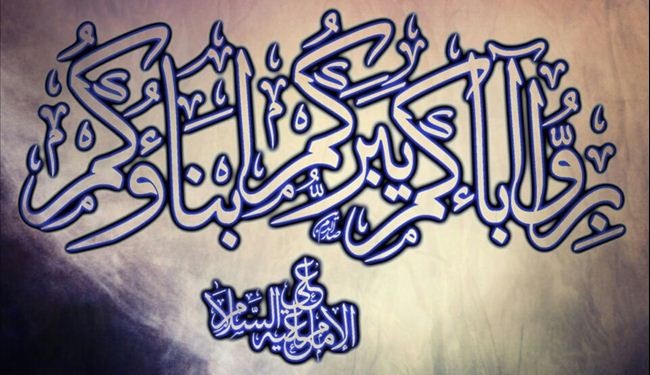 بِرُّوا آباءَكُم يَبَرَّكُم أبنَاؤُكُم
الإمام علي عليه السَّلام